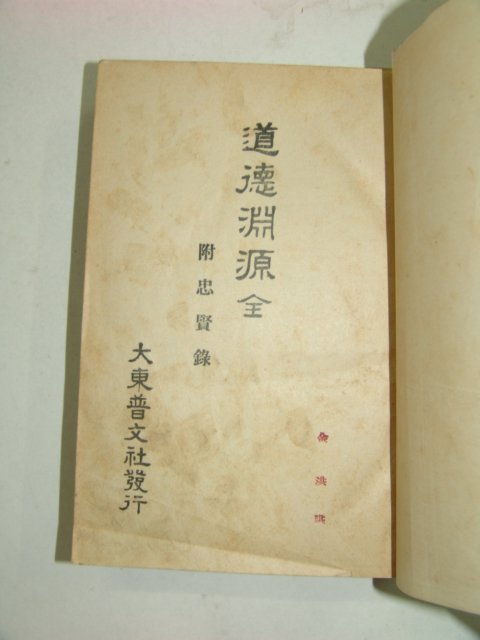 道德淵源全
附忠賢錄
大東普文社發行